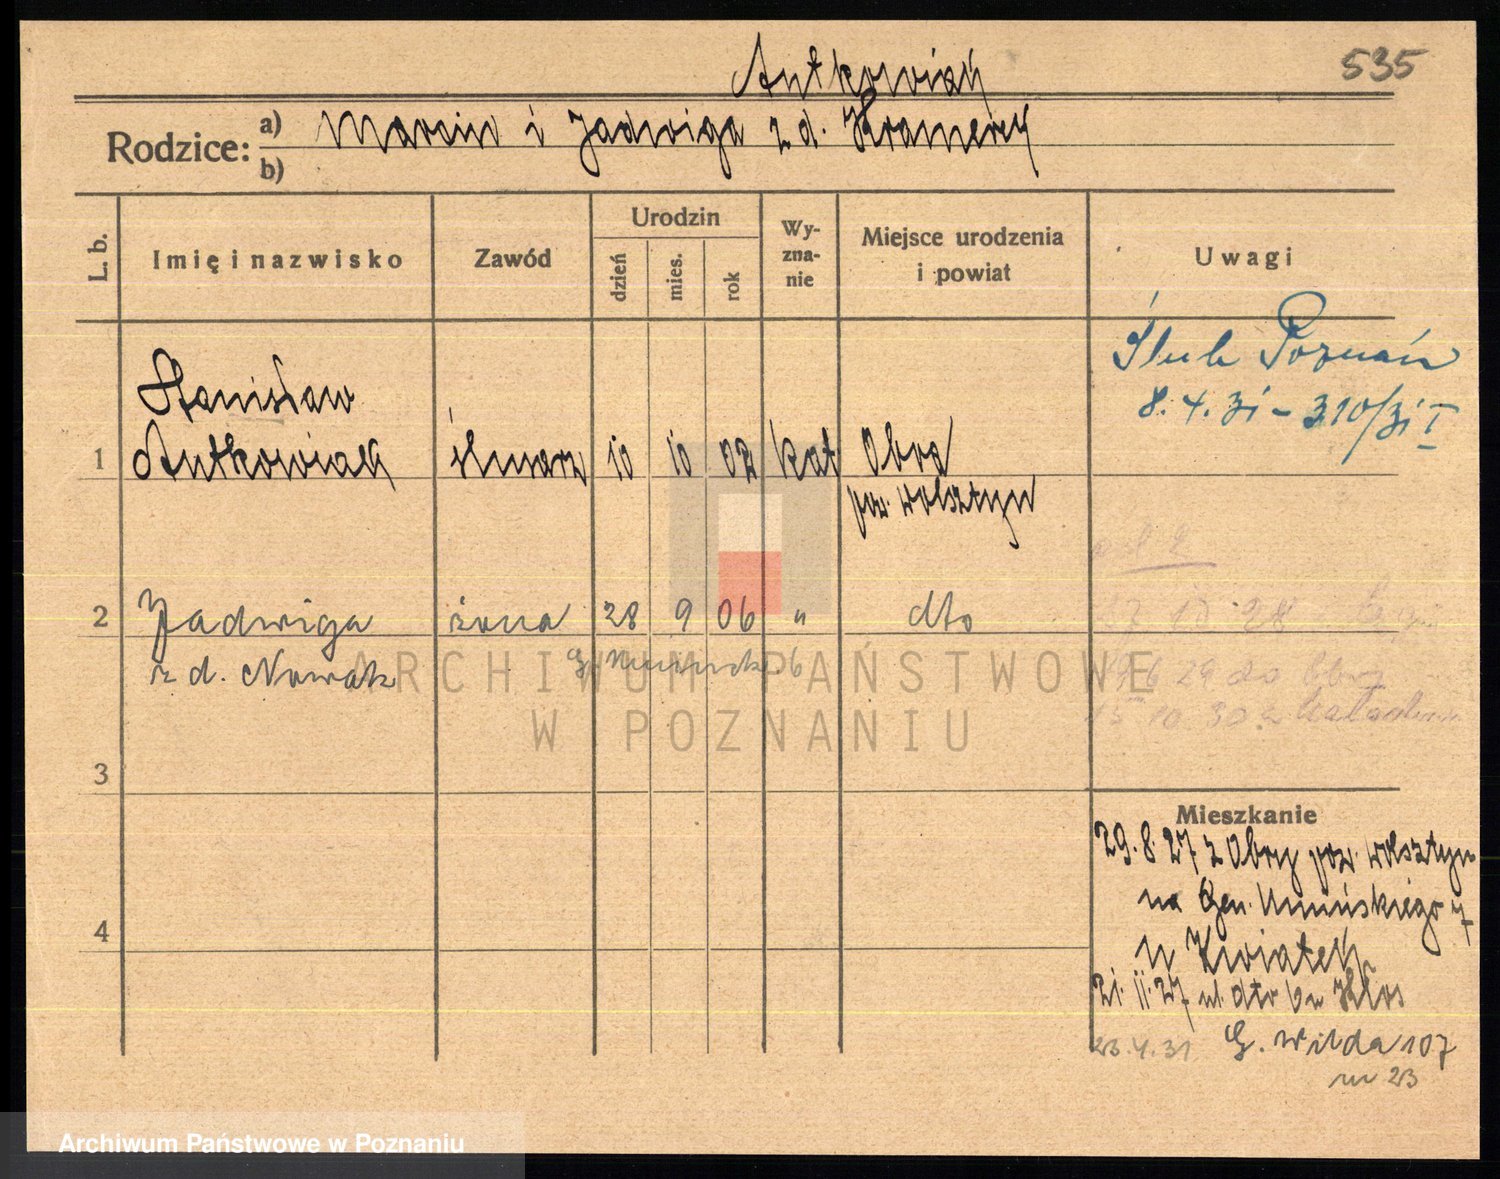 Antkowiak
535
Rodzice:
a) Marcin i Jadwiga z d.
b)
L. b.
Imię i nazwisko
Zawód
Urodzin
dzień
mies.
rok
Wy-
zna-
nie
Miejsce urodzenia
i powiat
Uwagi
Ślub Poznań
8.4.31 - 310/31 I
Stanisław
1 Antkowiak ślusarz 10 10 02 kat Obra
pow. Wolsztyn
2 Jadwiga żona 28 9 06 " dto
z d. Nowak
15 10 30
3
4
Mieszkanie
29.8.27 z Obry pow. Wolsztyn
na Gen. Umińskiego 7
u Kwiatek
21.11.27 ul. dto 6 u Kłos
23.4.31 G. Wilda 107
m 23
ARCHIWUM PAŃSTWOWE
W POZNANIU
Archiwum Państwowe w Poznaniu